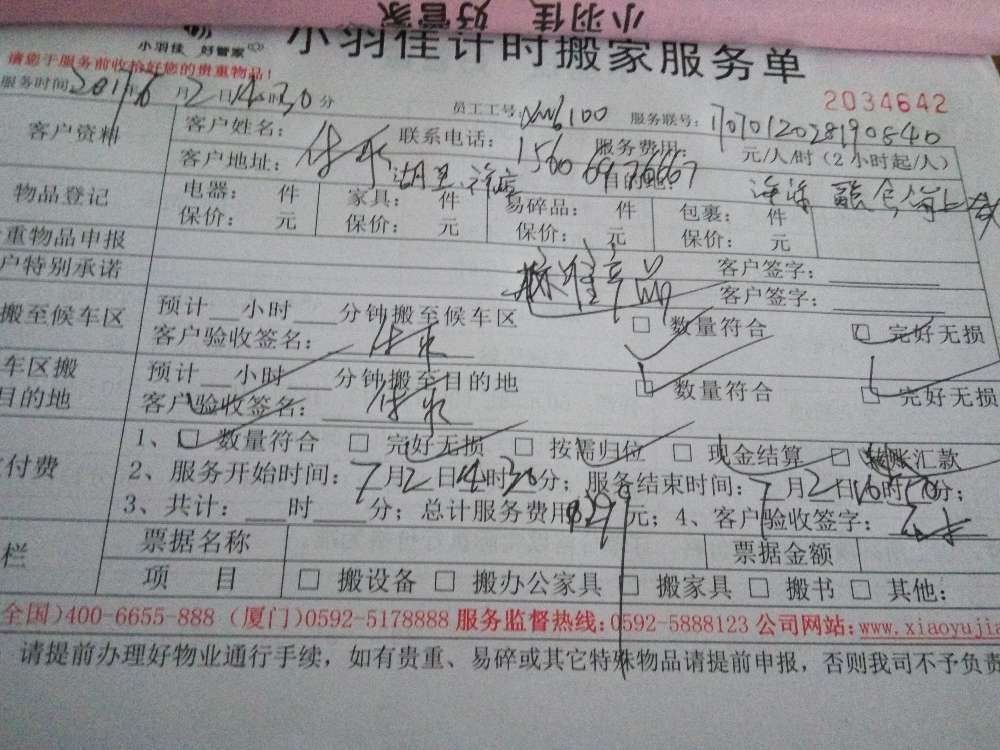 小羽佳 好管家
小羽佳 好管家
小羽佳计时搬家服务单
请您于服务前收拾好您的贵重物品！
2034642
服务时间 2017 6 月 2 日 14 时 30 分 员工工号: xm6100 服务联号: 1707012028190840
客户资料
客户姓名： 联系电话： 156 69776667 服务费用： 元/人/时（2小时起/人）
客户地址： 湖里 目的地： 海沧
物品登记
电器： 件 家具： 件 易碎品： 件 包裹： 件
保价： 元 保价： 元 保价： 元 保价： 元
重物品申报 客户签字：
户特别承诺 标准产品 客户签字：
搬至候车区
预计__小时___分钟搬至候车区 □ 数量符合 □ 完好无损
客户验收签名：
车区搬
目的地
预计__小时___分钟搬至目的地 □ 数量符合 □ 完好无损
客户验收签名：
付费
1、□ 数量符合 □ 完好无损 □ 按需归位 □ 现金结算 □ 转账汇款
2、服务开始时间：7月2日14时30分；服务结束时间：7月2日16时50分；
3、共计：___时___分；总计服务费用 元；4、客户验收签字：
栏
票据名称 票据金额
项 目 □ 搬设备 □ 搬办公家具 □ 搬家具 □ 搬书 □ 其他：
全国)400-6655-888 (厦门)0592-5178888 服务监督热线:0592-5888123 公司网站:www.xiaoyujia
请提前办理好物业通行手续，如有贵重、易碎或其它特殊物品请提前申报，否则我司不予负责